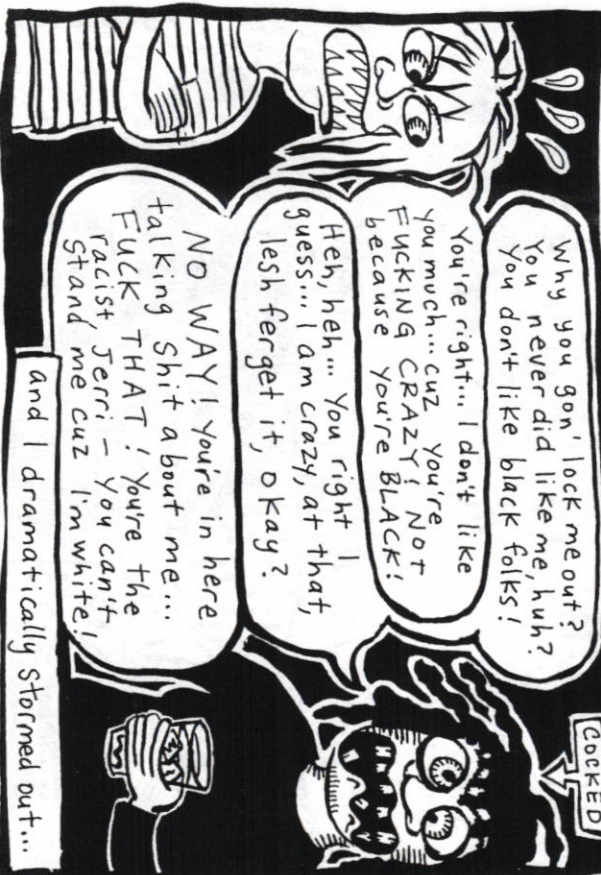 COCKED
Why you gon' lock me out?
You never did like me, huh?
You don't like black folks!
You're right... I don't like
you much... cuz you're
FUCKING CRAZY! NOT
because you're BLACK!
Heh, heh... You right I
guess... I am crazy, at that,
lesh ferget it, okay?
NO WAY! You're in here
talking shit about me...
FUCK THAT! You're the
racist Jerri - You can't
stand me cuz I'm white!
and I dramatically stormed out...